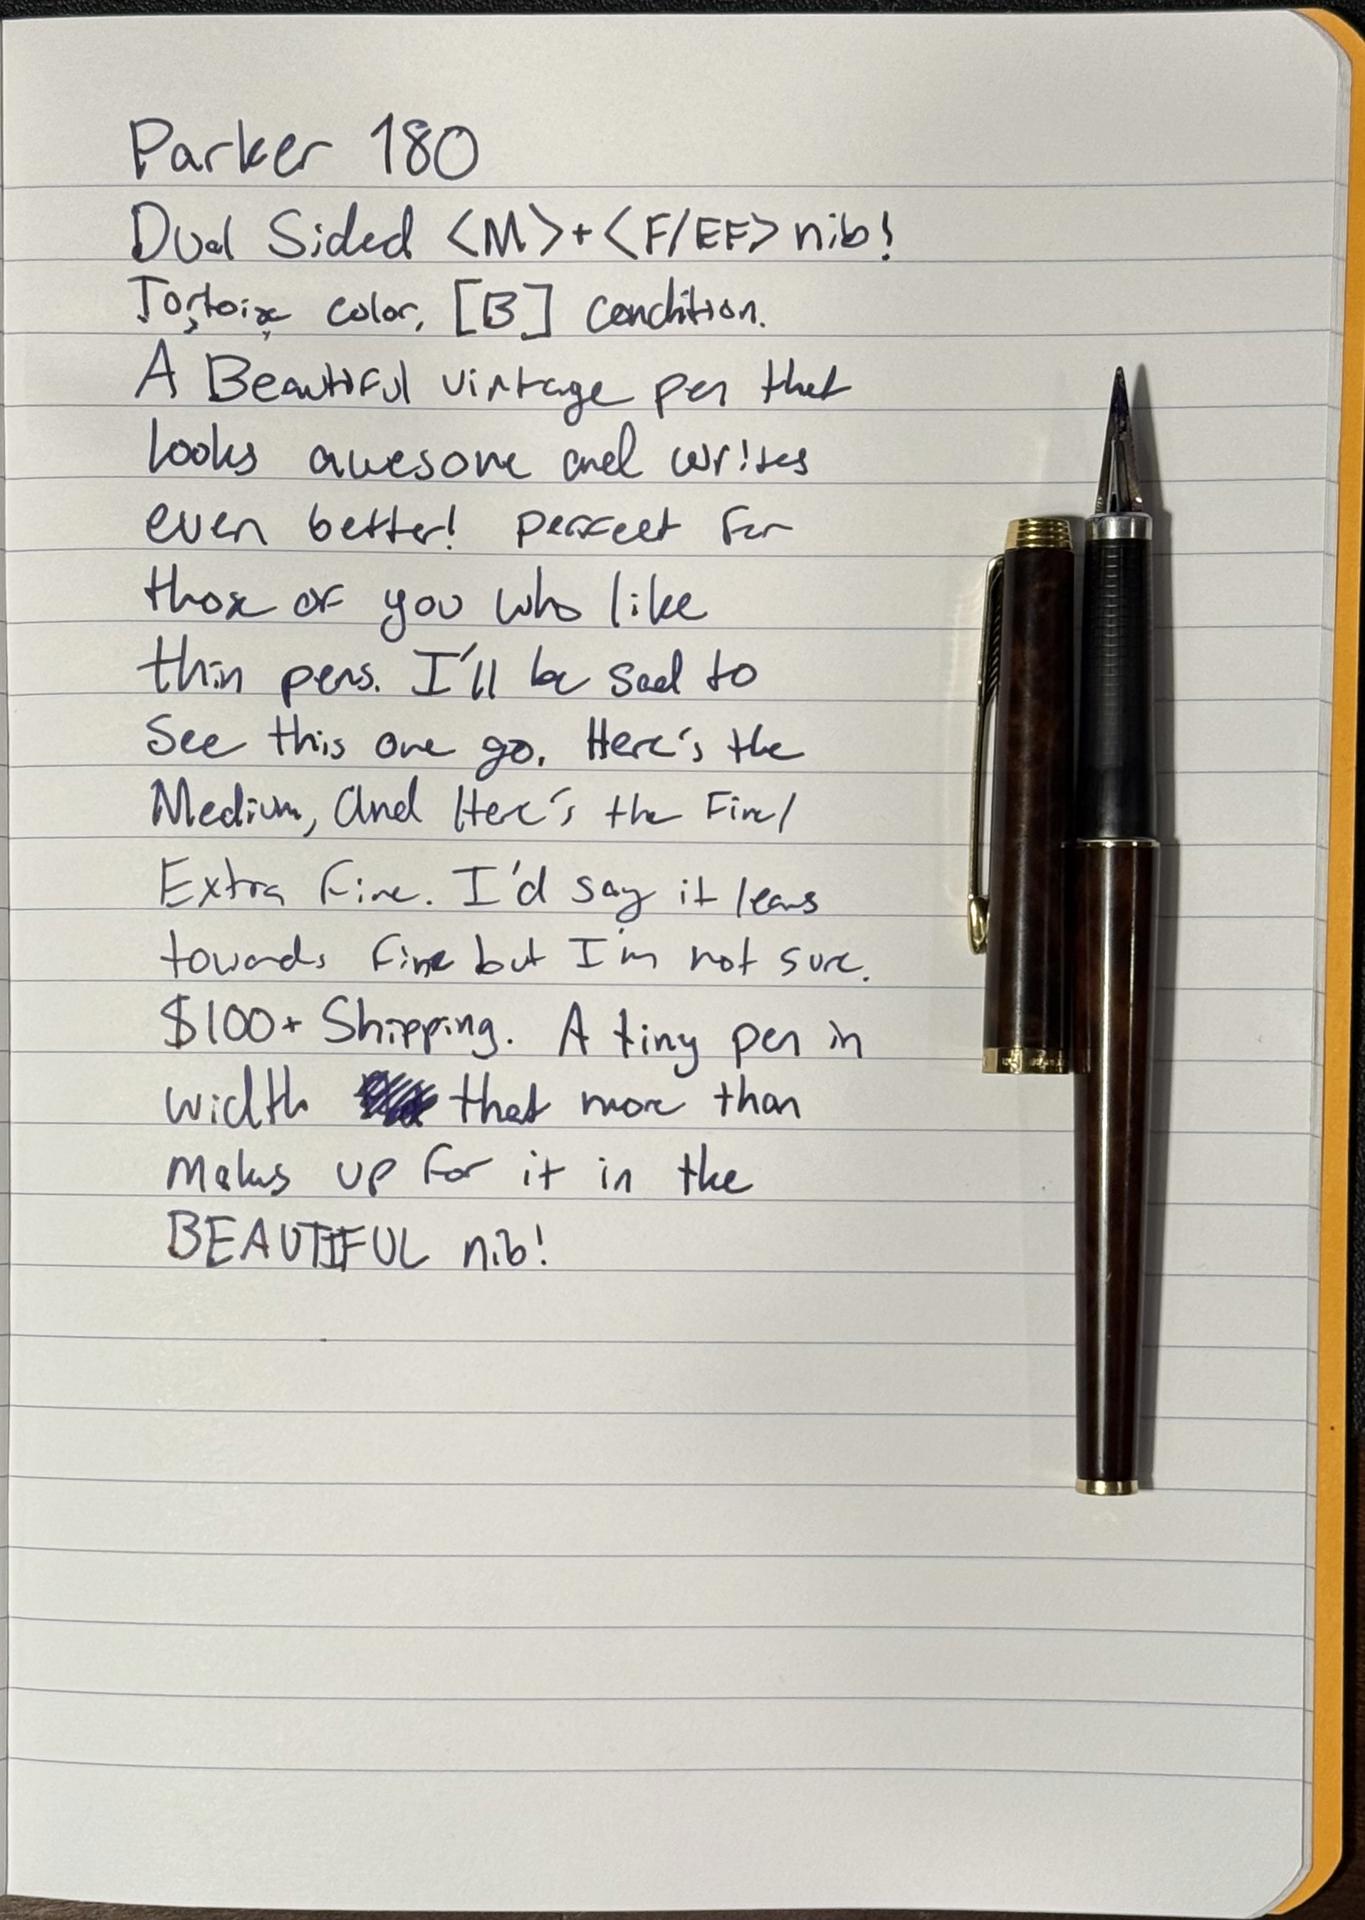 Parker 180
Dual Sided <M>+<F/EF> nib!
Tortoise color, [B] condition.
A Beautiful vintage pen that
looks awesome and writes
even better! perfect for
those of you who like
thin pens. I'll be sad to
see this one go. Here's the
Medium, and Here's the Fine/
Extra Fine. I'd say it leans
towards fine but I'm not sure.
$100+ Shipping. A tiny pen in
width that more than
makes up for it in the
BEAUTIFUL nib!